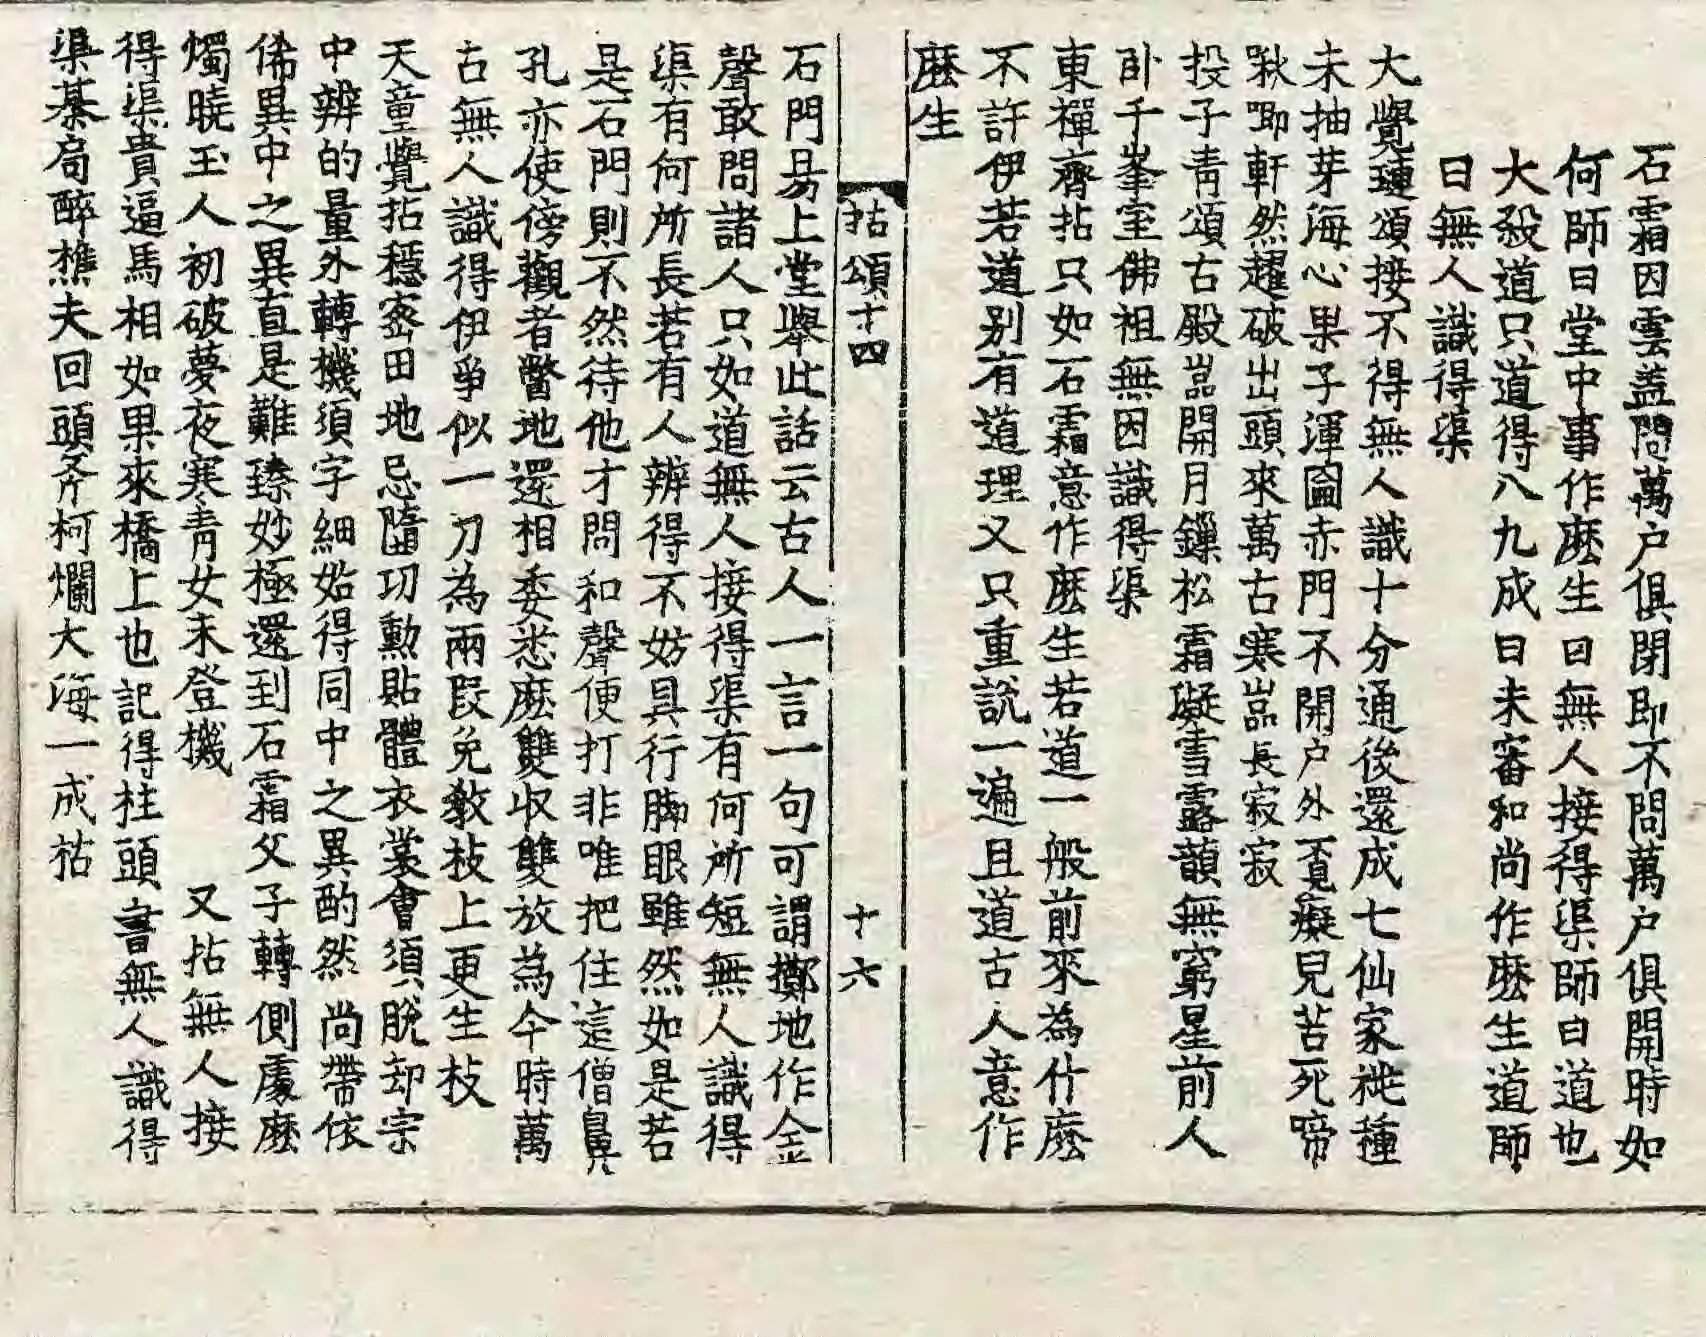 石霜因雲盖問萬户俱閉即不問萬户俱開時如
何師曰堂中事作麽生曰無人接得渠師曰道也
大殺道只道得八九成曰未審和尚作麽生道師
曰無人識得渠
大覺璉頌接不得無人識十分通後還成七仙家桃種
未抽芽海心果子渾圇赤門不開户外覔癡兒苦死啼
啾唧軒然趯破出頭來萬古寒嵓長寂寂
投子青頌古殿嵓開月鏁松霜凝雪露韻無窮星前人
卧千峯室佛祖無因識得渠
東禪齊拈只如石霜意作麽生若道一般前來為什麽
不許伊若道别有道理又只重說一遍且道古人意作
麽生
拈頌十四 十六
石門易上堂舉此話云古人一言一句可謂擲地作金
聲敢問諸人只如道無人接得渠有何所短無人識得
渠有何所長若有人辨得不妨具行脚眼雖然如是若
是石門則不然待他才問和聲便打非唯把住這僧鼻
孔亦使傍觀者瞥地還相委悉麽雙収雙放為今時萬
古無人識得伊爭似一刀為兩段免教枝上更生枝
天童覺拈穩宻田地忌墮功勳貼體衣裳會須脫却宗
中辨的量外轉機須字細始得同中之異酌然尚帶依
俙異中之異直是難臻妙極還到石霜父子轉側處麽
燭曉玉人初破夢夜寒青女未登機 又拈無人接
得渠貴逼馬相如果來橋上也記得柱頭書無人識得
渠棊局醉樵夫回頭斧柯爛大海一成枯